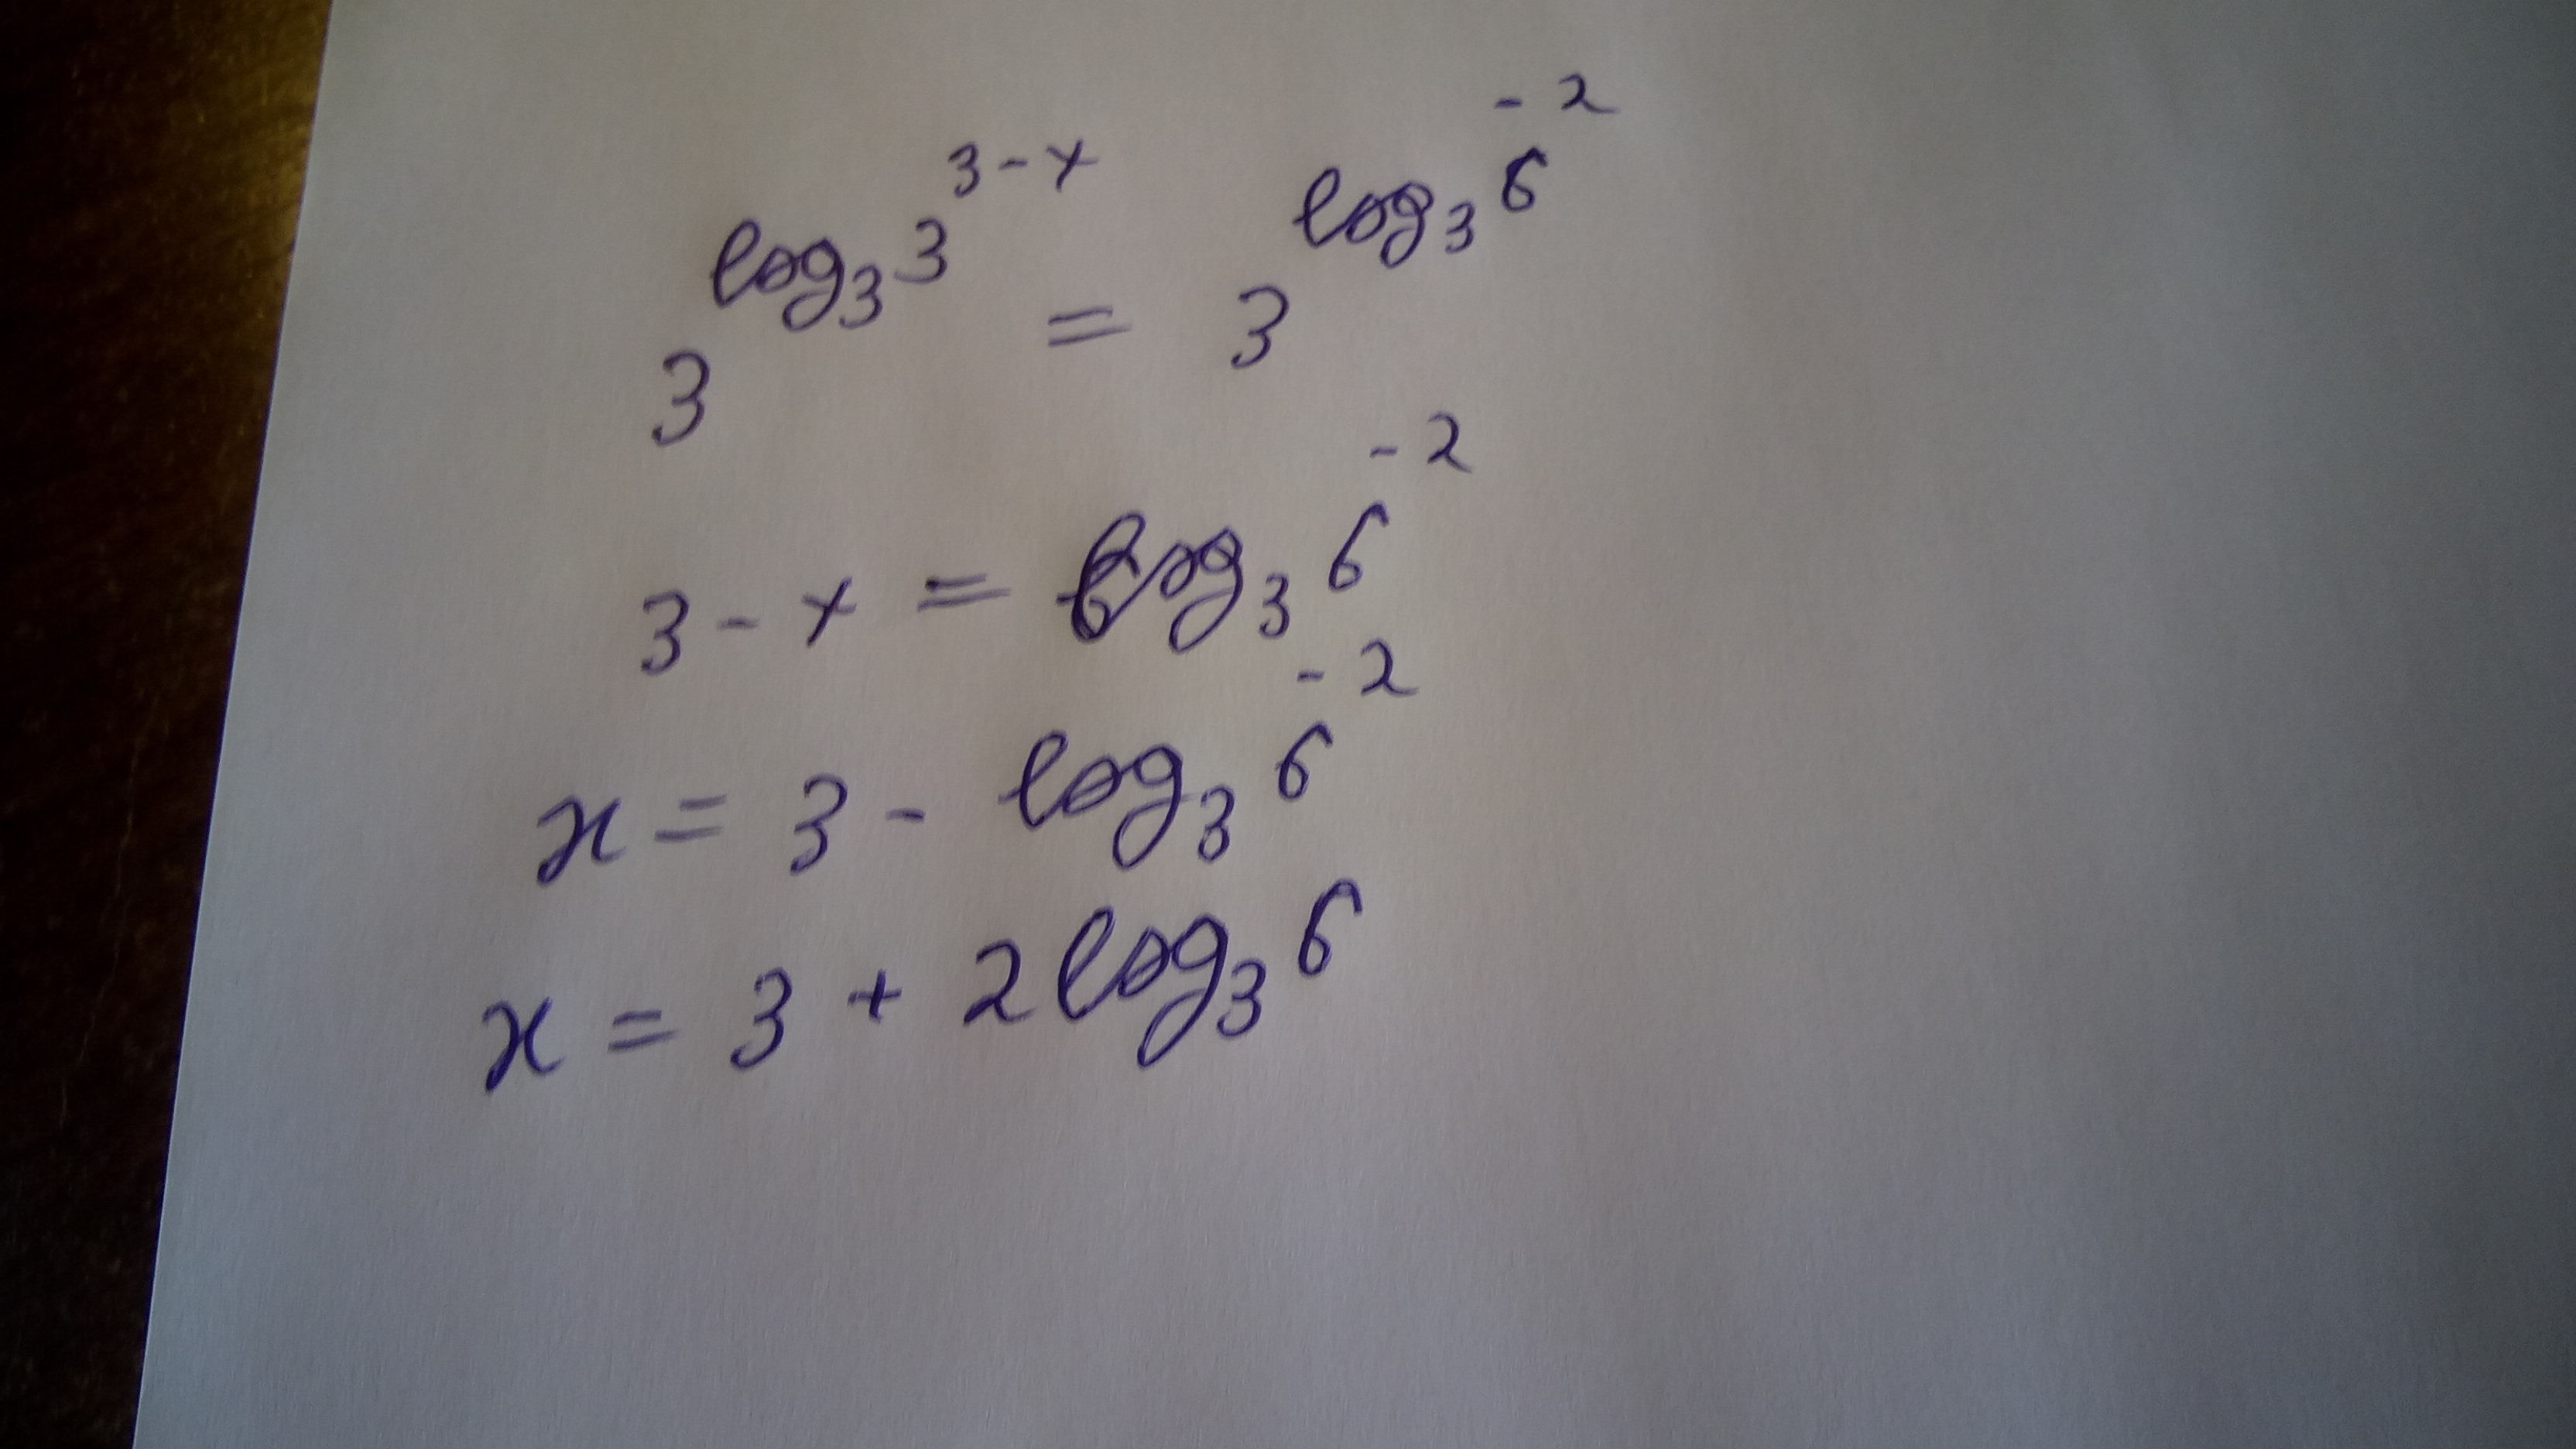 3^{log_3 3^{3-x}} = 3^{log_3 6^{-2}}
3 - x = log_3 6^{-2}
x = 3 - log_3 6^{-2}
x = 3 + 2 log_3 6